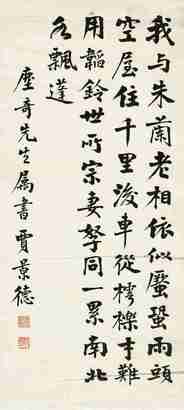 我与朱蘭老相依似蜃蛩兩頭
空屋住十里後車從樗櫟才難
用韜鈐世所宗妻孥同一累南北
各飄蓬
塵奇先生属書賈景德